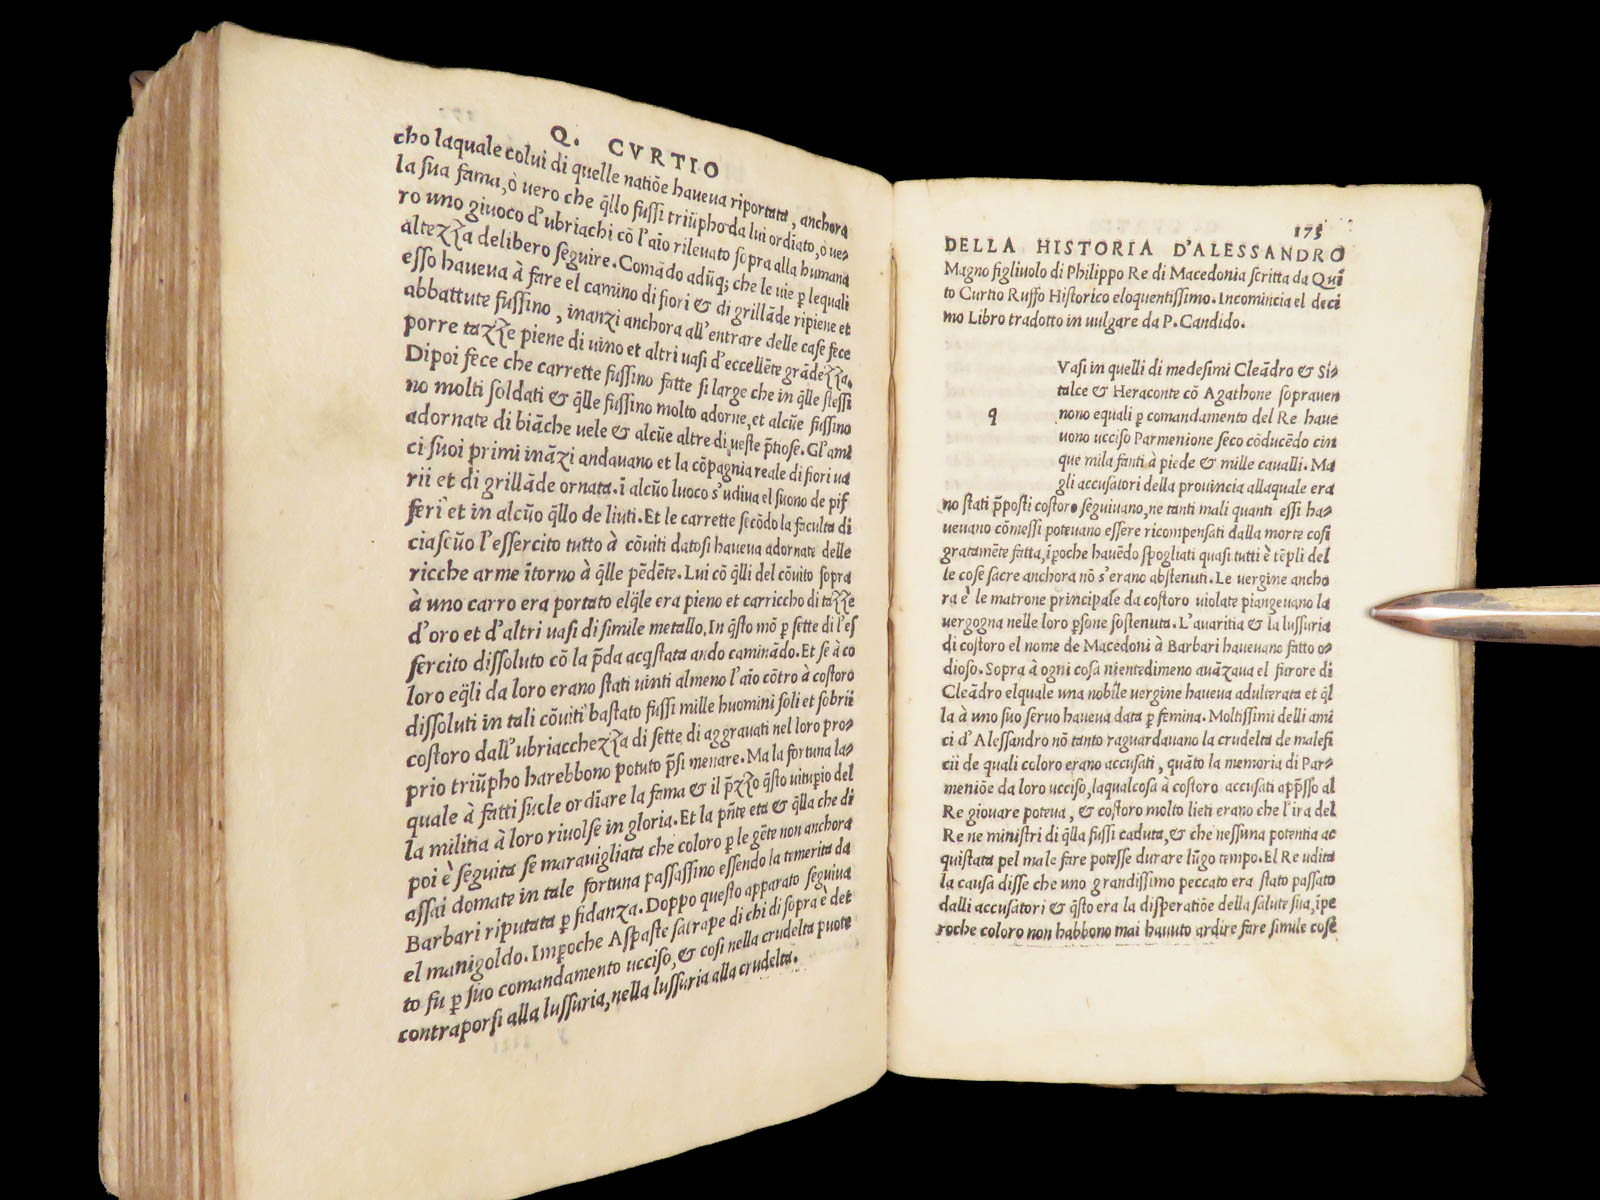 Q. CVRTIO
cho laquale colui di quelle natiōe haveva riportata, anchora
la sua fama, ò vero che q̄llo fussi triūpho da lui ordiato, ò ve-
ro uno giuoco d'ubriachi cō l'aīo rilevato sopra alla humana
altezza delibero seguire. Comādo adūq; che le vie ꝑ lequali
esso haveva à fare el camino di fiori & di grillāde ripiene et
abbattute fussino, inanzi anchora all'entrare delle case fece
porre tazze piene di vino et altri vasi d'eccellēte grādezza.
Dipoi fece che carrette fussino fatte si large che in q̄lle stessi
no molti soldati & q̄lle fussino molto adorne, et alcūe fussino
adornate di biāche vele & alcūe altre di veste p̄tiose. Gl'ami
ci suoi primiināzi andavano et la cōpagnia reale di fiori va
rii et di grillāde ornata. ī alcūo luoco s'udiva el suono de pif
feri et in alcūo q̄llo de liuti. Et le carrette secōdo la faculta di
ciascūo l'essercito tutto à cōviti datosi haveva adornate delle
ricche arme ītorno à q̄lle pēdēte. Lui cō q̄lli del cōvito sopra
à uno carro era portato elq̄le era pieno et carriccho di tazze
d'oro et d'altri vasi di simile metallo. In q̄sto mō ꝑ sette di l'es
sercito dissoluto cō la p̄da acq̄stata ando caminādo. Et se à co
loro eq̄li da loro erano stati vinti almeno l'aīo cōtro à costoro
dissoluti in tali cōviti bastato fussi mille huomini soli et sobrii
costoro dall'ubriacchezza di sette di aggravati nel loro pro-
prio triūpho harebbono potuto p̄si menare. Ma la fortuna la-
quale à fatti suole ordīare la fama & il p̄zzo q̄sto vituꝑio del
la militia à loro rivolse in gloria. Et la pn̄te eta & q̄lla che di
poi è seguita se maravigliata che coloro ꝑ le gēte non anchora
assai domate in tale fortuna passassino essendo la temerita da
Barbari riputata ꝑ fidanza. Doppo questo apparato seguiva
el manigoldo. Imꝑoche Aspaste satrape di chi di sopra è det
to fu ꝑ suo comandamento ucciso, & cosi nella crudelta puote
contraporsi alla lussuria, nella lussuria alla crudelta.
175
DELLA HISTORIA D'ALESSANDRO
Magno figlivolo di Philippo Re di Macedonia scritta da Quī
to Curtio Ruffo Historico eloquentissimo. Incomincia el deci
mo Libro tradotto in vulgare da P. Candido.
q
Vasi in quelli di medesimi Cleādro & Si-
talce & Heraconte cō Agathone sopraven
nono equali ꝑ comandamento del Re have
vono ucciso Parmenione seco cōducēdo cin
que mila fanti à piede & mille cavalli. Ma
gli accusatori della provincia allaquale era
no stati p̄posti costoro seguivano, ne tanti mali quanti essi ha-
vevano cōmessi potevano essere ricompensati dalla morte cosi
gratamēte fatta, īꝑoche havēdo spogliati quasi tutti è tēpli del
le cose sacre anchora nō s'erano abstenuti. Le vergine ancho
ra è le matrone principale da costoro violate piangevano la
vergogna nelle loro ꝑsone sostenuta. L'avaritia & la lussuria
di costoro el nome de Macedoni à Barbari havevano fatto o-
dioso. Sopra à ogni cosa nientedimeno avāzava el furore di
Cleādro elquale una nobile vergine haveva adulterata et q̄l
la à uno suo servo haveva data ꝑ femina. Moltissimi delli ami
ci d'Alessandro nō tanto raguardavano la crudelta de malefi
cii de quali coloro erano accusati, quāto la memoria di Par-
meniōe da loro ucciso, laqualcosa à costoro accusati app̄sso al
Re giovare poteva, & costoro molto lieti erano che l'ira del
Re ne ministri di q̄lla fussi caduta, & che nessuna potentia ac
quistata pel male fare potesse durare lūgo tempo. El Re udita
la causa disse che uno grandissimo peccato era stato passato
dalli accusatori & q̄sto era la disperatiōe della salute sua, īpe
roche coloro non habbono mai havuto ardire fare simile cose